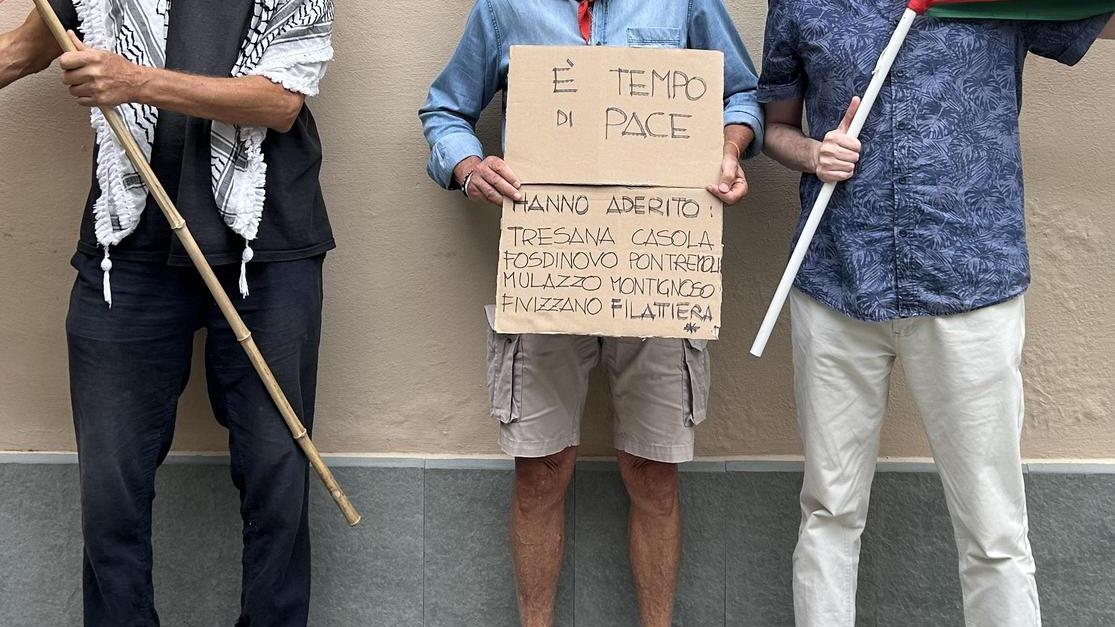 È TEMPO
DI PACE
HANNO ADERITO:
TRESANA CASOLA
FOSDINOVO PONTREMOLI
MULAZZO MONTIGNOSO
FIVIZZANO FILATTIERA